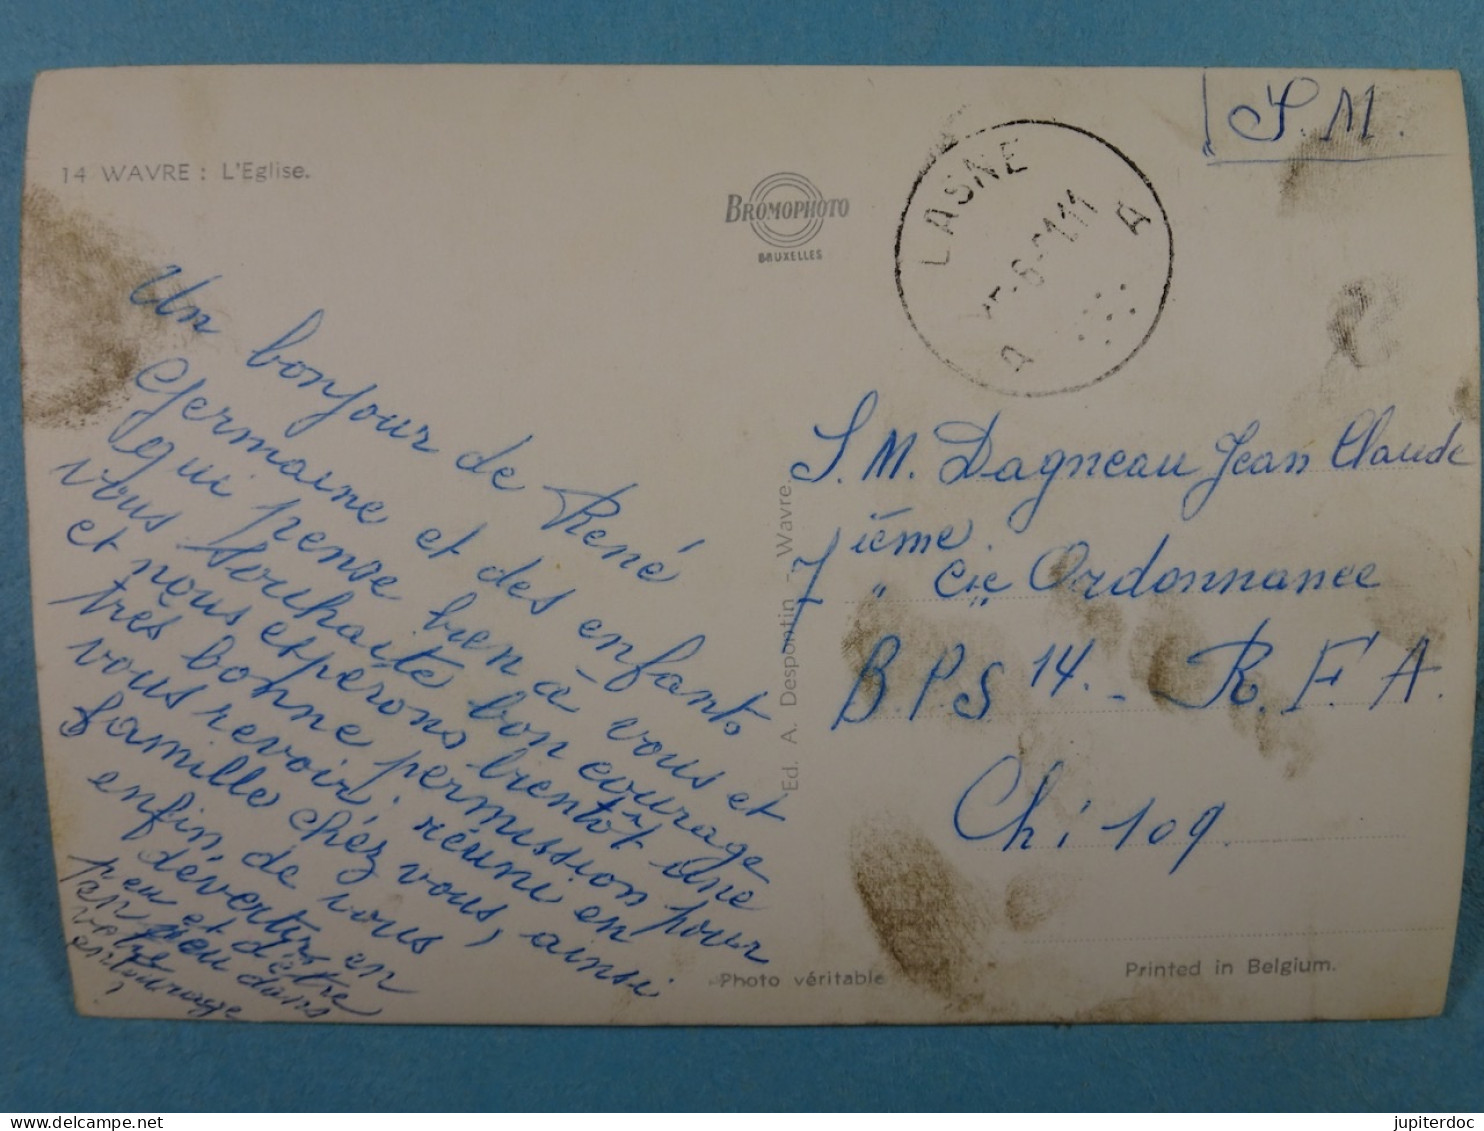 S.M.
14 WAVRE : L'Eglise.
BROMOPHOTO
BRUXELLES
LASNE
A A
Un bonjour de René
Germaine et des enfants
qui pense bien à vous et
vous souhaite bon courage
et nous esperons bientôt une
très bonne permission pour
vous revoir réuni en
famille chéz vous, ainsi
enfin, de vous
dévertir en
peu et d'être
en peu dans
votre
entourage
Ed. A. Despontin - Wavre.
S.M. Dagneau Jean Claude
7 ième Cie Ordonnance
B.P.S 14. - R.F.A.
Chi 109.
Photo véritable
Printed in Belgium.
jupiterdoc